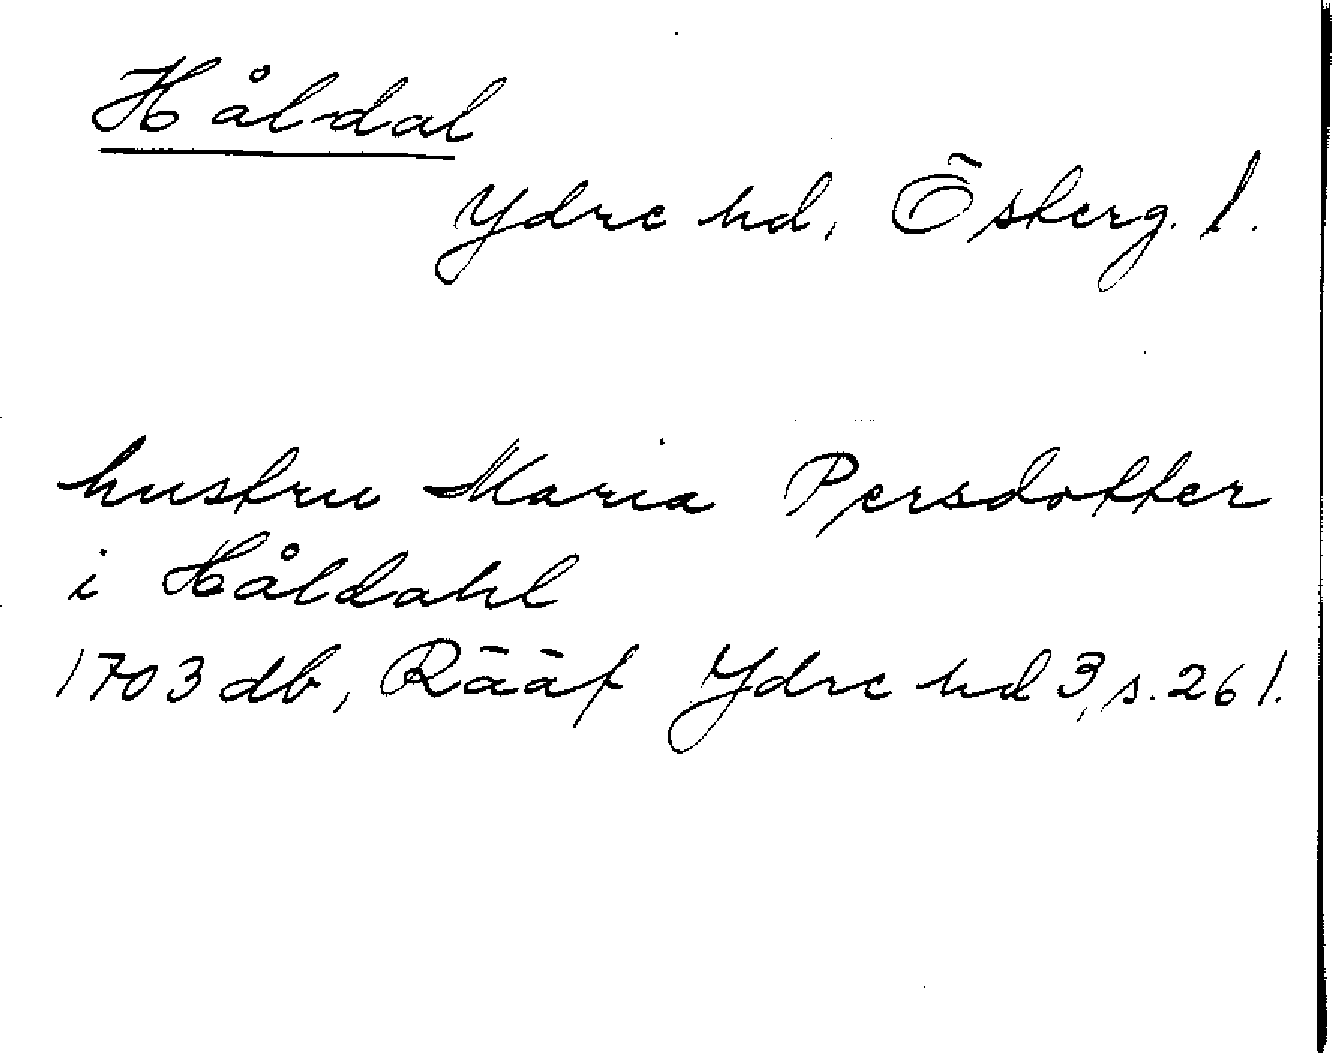 Håldal
Ydre hd, Österg. l.
hustru Maria Persdotter
i Håldahl
1703 db, Rääf Ydre hd 3, s. 261.